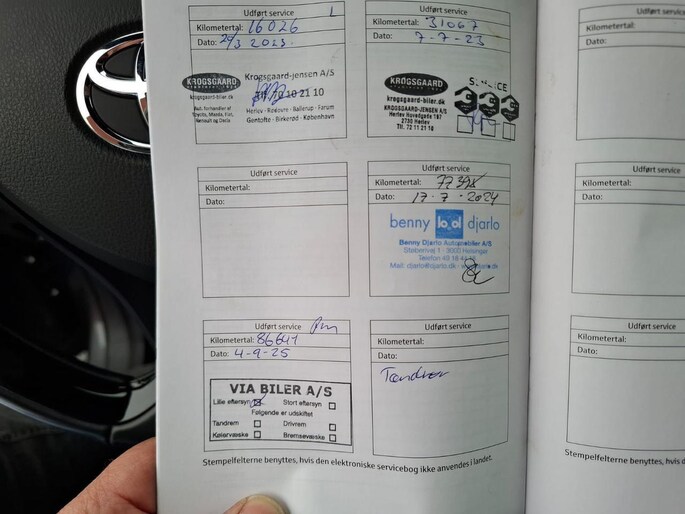 Udført service
L
Kilometertal: 16026
Dato: 29/3 2023.
KROGSGAARD
krogsgaard-biler.dk
Aut. forhandler af
Toyota, Mazda, Fiat,
Renault og Dacia
Krogsgaard-Jensen A/S
Tlf. 70 10 21 10
Herlev · Rødovre · Ballerup · Farum
Gentofte · Birkerød · København
Udført service
Kilometertal: 31067
Dato: 7-7-23
KROGSGAARD
krogsgaard-biler.dk
KROGSGAARD-JENSEN A/S
Herlev Hovedgade 187
2730 Herlev
Tlf. 72 11 21 18
SERVICE
Udført service
Kilometertal:
Dato:
Udført service
Kilometertal:
Dato: 17-7-2024
benny djarlo
Benny Djarlo Automobiler A/S
Støberivej 1 · 3000 Helsingør
Telefon 49 18
Mail: djarlo@djarlo.dk
Udført service
Kilometertal: 86641
Dato: 4-9-25
VIA BILER A/S
Lille eftersyn
Stort eftersyn
Følgende er udskiftet
Tandrem
Drivrem
Kølervæske
Bremsevæske
Udført service
Kilometertal:
Dato:
Stempelfelterne benyttes, hvis den elektroniske servicebog ikke anvendes i landet.
Udført
Kilometertal:
Dato:
Kilometertal:
Dato:
Kilometertal:
Dato:
Stempelfelterne benyttes, hv